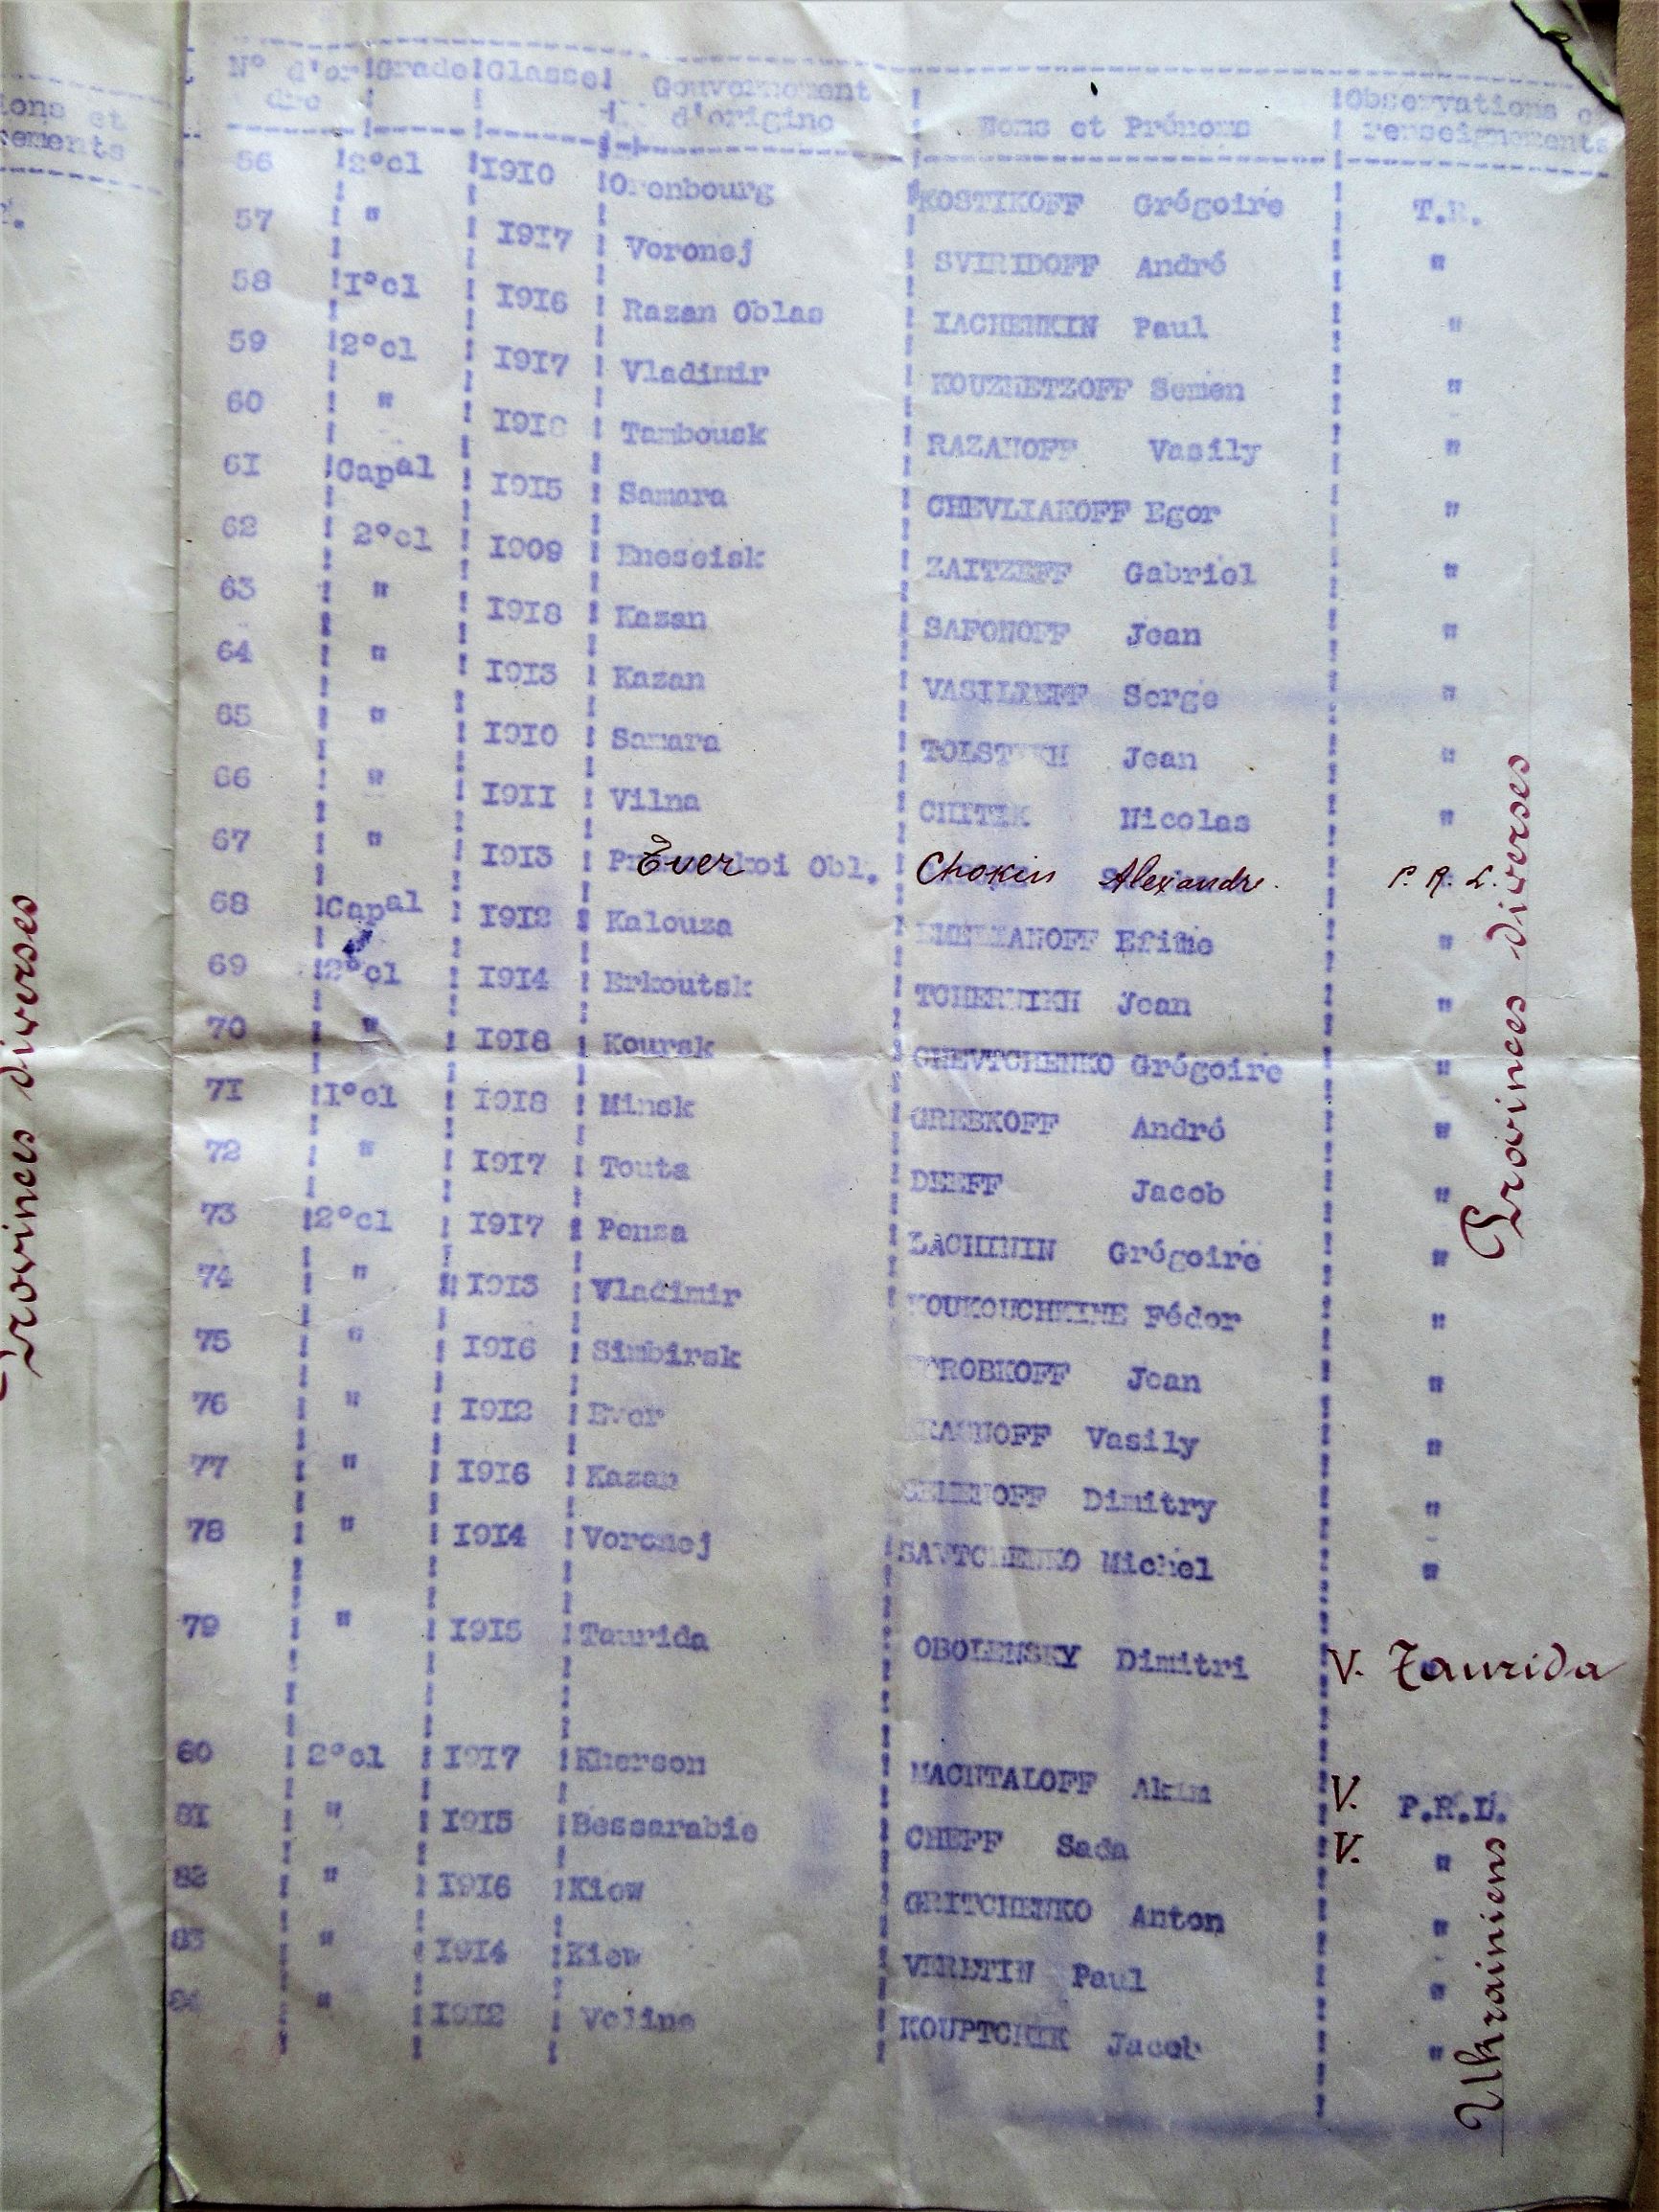 ions et
rements
Provinces diverses
N° d'or Grade Classe Gouvernement Noms et Prénoms Observations et
dre d'origine renseignements
56 2°cl I9I0 Orenbourg KOSTIKOFF Grégoire T.R.
57 " I9I7 Voronej SVIRIDOFF André "
58 I°cl I9I6 Razan Oblas IACHENKIN Paul "
59 2°cl I9I7 Vladimir KOUZNETZOFF Semen "
60 " Tambousk RAZANOFF Vasily "
6I Capal I9I5 Samara CHEVLIAKOFF Egor "
62 2°cl I909 Eneseisk ZAITZEFF Gabriel "
63 " I9I8 Kazan SAFONOFF Jean "
64 " I9I3 Kazan VASILIEFF Serge "
65 " I9I0 Samara Jean "
66 " I9II Vilna CHITIK Nicolas "
67 " I9I3 Tver Obl. Chokin Alexandre. P. R. L.
68 Capal I9I2 Kalouza EMELIANOFF Efime "
69 2°cl I9I4 Erkoutsk TCHERNIKH Jean "
70 " I9I8 Koursk CHEVTCHENKO Grégoire "
7I I°cl I9I8 Minsk GREBKOFF André "
72 " I9I7 Touta DEEFF Jacob "
73 2°cl I9I7 Penza LACHININ Grégoire "
74 " I9I3 Vladimir KOUKOUCHKINE Fédor "
75 " I9I6 Simbirsk Jean "
76 " I9I2 Ever Vasily "
77 " I9I6 Kazan SEMENOFF Dimitry "
78 " I9I4 Voronej SAVTCHENKO Michel "
79 " I9I5 Taurida OBOLENSKY Dimitri V. Taurida
80 2°cl I9I7 Kherson MACHTALOFF Akim V. P.R.L.
8I " I9I5 Bessarabie CHEFF Sada V. "
82 " I9I6 Kiew GRITCHENKO Anton "
83 " I9I4 Kiew VERETIN Paul "
84 " I9I2 Voline KOUPTCHIK Jacob "
Provinces diverses
Ukrainiens